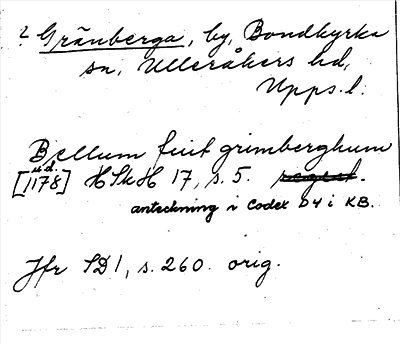 ? Gränberga, by, Bondkyrka
sn, Ulleråkers hd,
Upps. l.
Bellum fuit grimberghum
u.d.
[1178] HSkH 17, s. 5. regest.
anteckning i Codex D4 i KB.
Jfr SD 1, s. 260. orig.